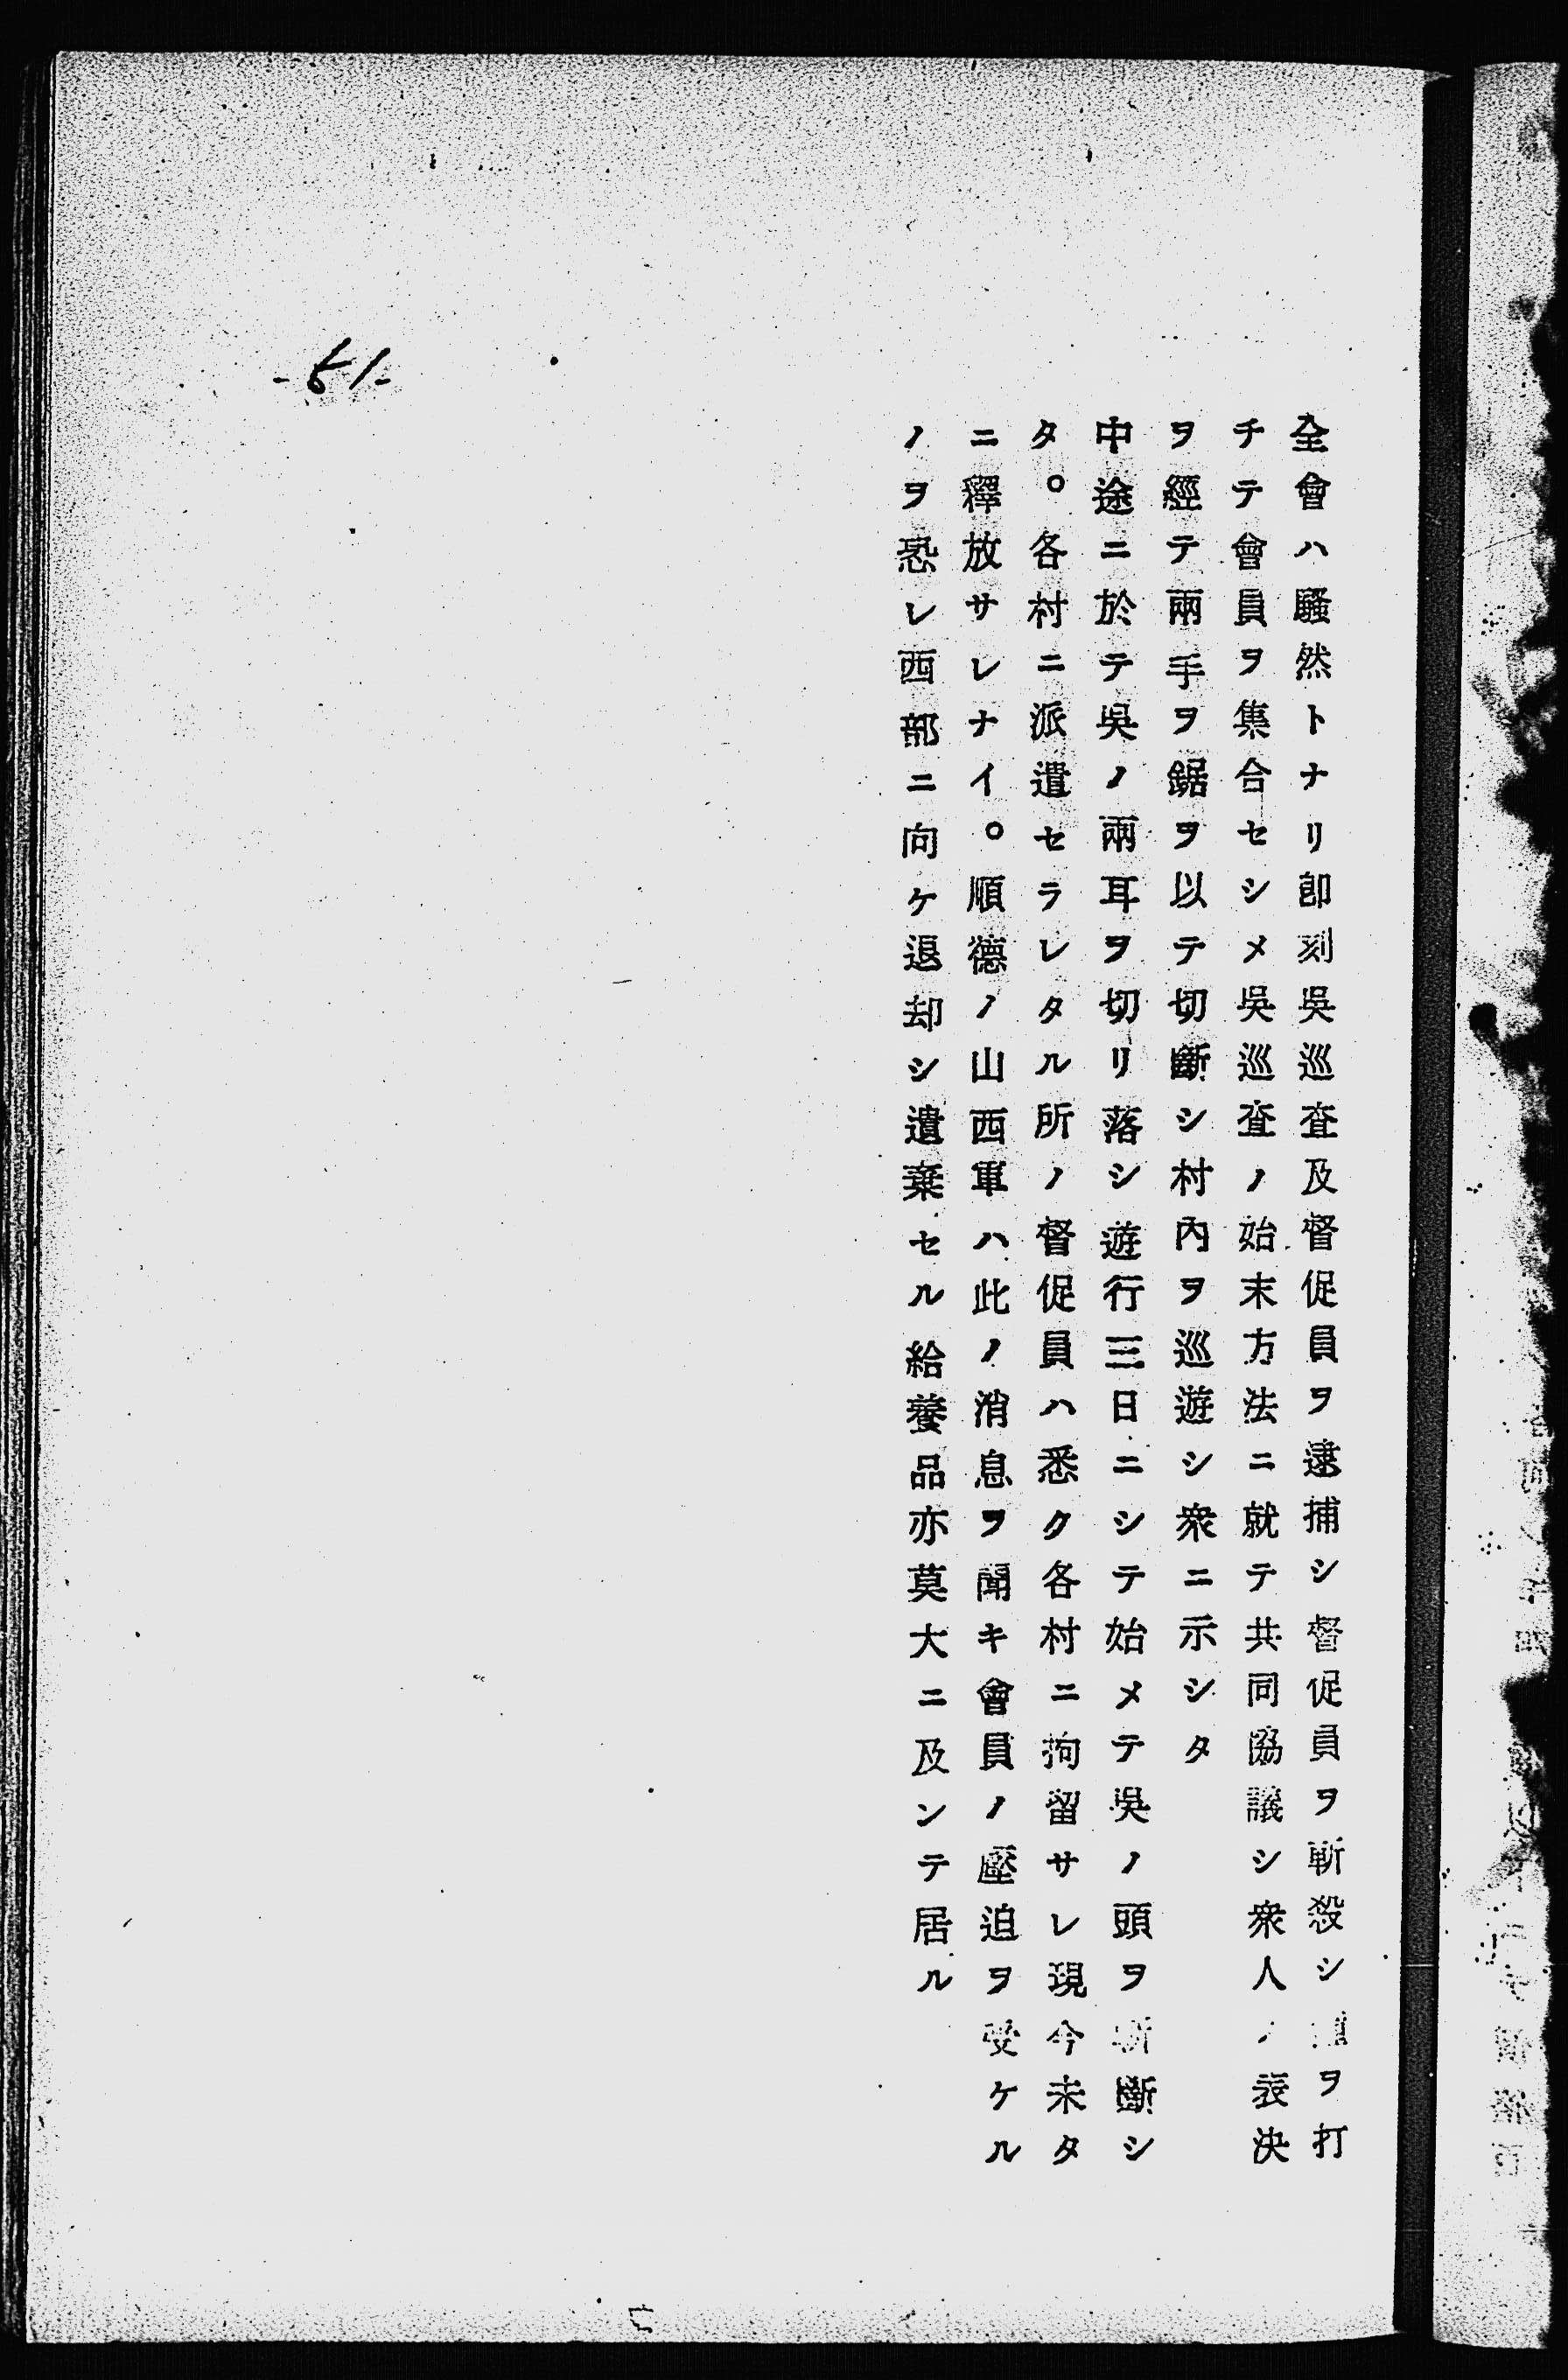 全會ハ騷然トナリ卽刻吳巡査及督促員ヲ逮捕シ督促員ヲ斬殺シ鐘ヲ打
チテ會員ヲ集合セシメ吳巡査ノ始末方法ニ就テ共同協議シ衆人ノ表決
ヲ經テ兩手ヲ鋸ヲ以テ切斷シ村內ヲ巡遊シ衆ニ示シタ
中途ニ於テ吳ノ兩耳ヲ切リ落シ遊行三日ニシテ始メテ吳ノ頭ヲ斬斷シ
タ。各村ニ派遣セラレタル所ノ督促員ハ悉ク各村ニ拘留サレ現今未タ
ニ釋放サレナイ。順德ノ山西軍ハ此ノ消息ヲ聞キ會員ノ壓迫ヲ受ケル
ノヲ恐レ西部ニ向ケ退却シ遺棄セル給養品亦莫大ニ及ンテ居ル
-51-